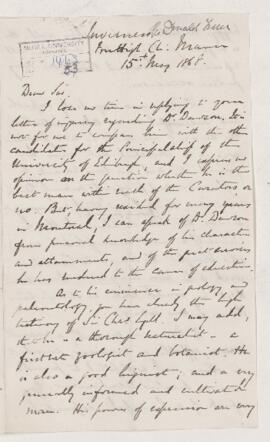 McGILL UNIVERSITY
ARCHIVES
Inverness
15th May 1868.
Dear Sir,
I lose no time in replying to your
letter of inquiry regarding Dr. Dawson. It is
not for me to compare him with the other
candidates for the Principalship of the
University of Edinburgh, and I express no
opinion on the question whether he is the
best man within reach of the Curators or
no. But, having resided for many years
in Montreal, I can speak of Dr. Dawson
from personal knowledge of his character
and attainments, and of the great services
he has rendered to the cause of education.
As to his eminence in geology and
palaeontology you have already the high
testimony of Sir Chas Lyell. I may add,
that he is a thorough naturalist - a
first rate zoologist and botanist. He
is also a good linguist; and a very
generally informed and cultivated
man. His powers of expression are very